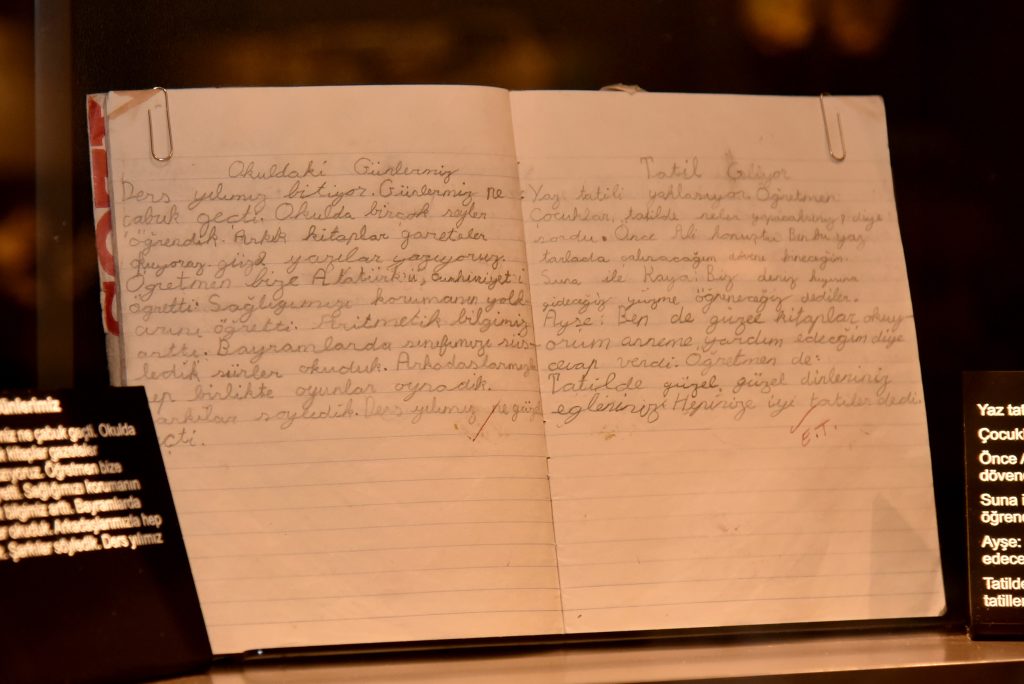 Okuldaki Günlermiz
Ders yılımız bitiyor. Günlermiz ne
çabuk geçti. Okulda birçok şeyler
öğrendik. Artık kitaplar gazeteler
okuyoruz güzel yazılar yazıyoruz.
Öğretmen bize Atatürkü, cumhuriyeti
öğretti. Sağlığımızı korumanın yoll-
arını öğretti. Aritmetik bilgimiz
arttı. Bayramlarda sınıfımızı süs-
ledik şiirler okuduk. Arkadaşlarımızla
hep birlikte oyunlar oynadık.
şarkılar söyledik. Ders yılımız ne güzel
geçti.
Tatil Geliyor
Yaz tatili yaklaşıyor. Öğretmen
Çocuklar, tatilde neler yapacaksınız? diye
sordu. Önce Ali konuştu Ben bu yaz
tarlada çalışacağım dövene bineceğim.
Suna ile Kaya: Biz deniz kıyısına
gideceğiz yüzme öğreneceğiz dediler.
Ayşe: Ben de güzel kitaplar okuy-
orum anneme yardım edeceğim diye
cevap verdi. Öğretmen de:
Tatilde güzel güzel dinleniniz
eğleniniz. Hepinize iyi tatiler dedi.
E.T.
ünlerimiz
mız ne çabuk geçti. Okulda
k kitaplar gazeteler
yazıyoruz. Öğretmen bize
retti. Sağlığımızı korumanın
bilgimiz arttı. Bayramlarda
er okuduk. Arkadaşlarımızla hep
k. Şarkılar söyledik. Ders yılımız
Yaz tat
Çocukl
Önce A
dövene
Suna i
öğrene
Ayşe:
edece
Tatilde
tatiller